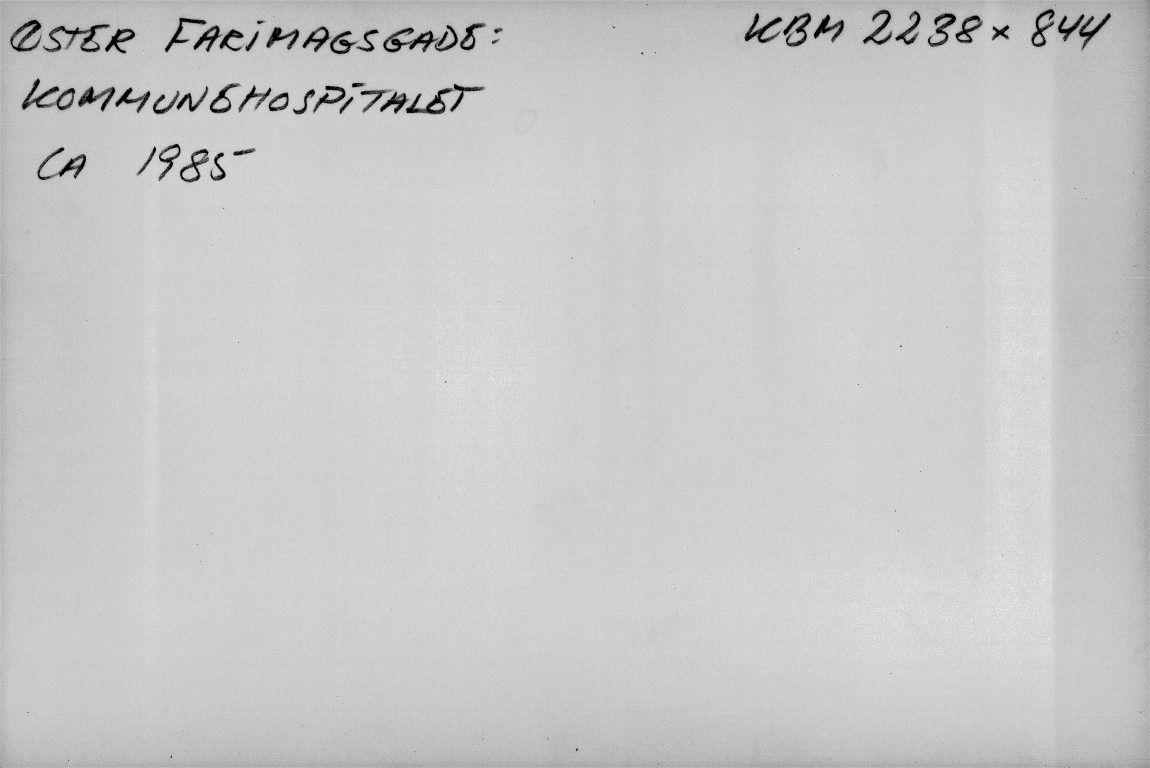 ØSTER FARIMAGSGADE: KBM 2238 x 844
KOMMUNEHOSPITALET
CA 1985